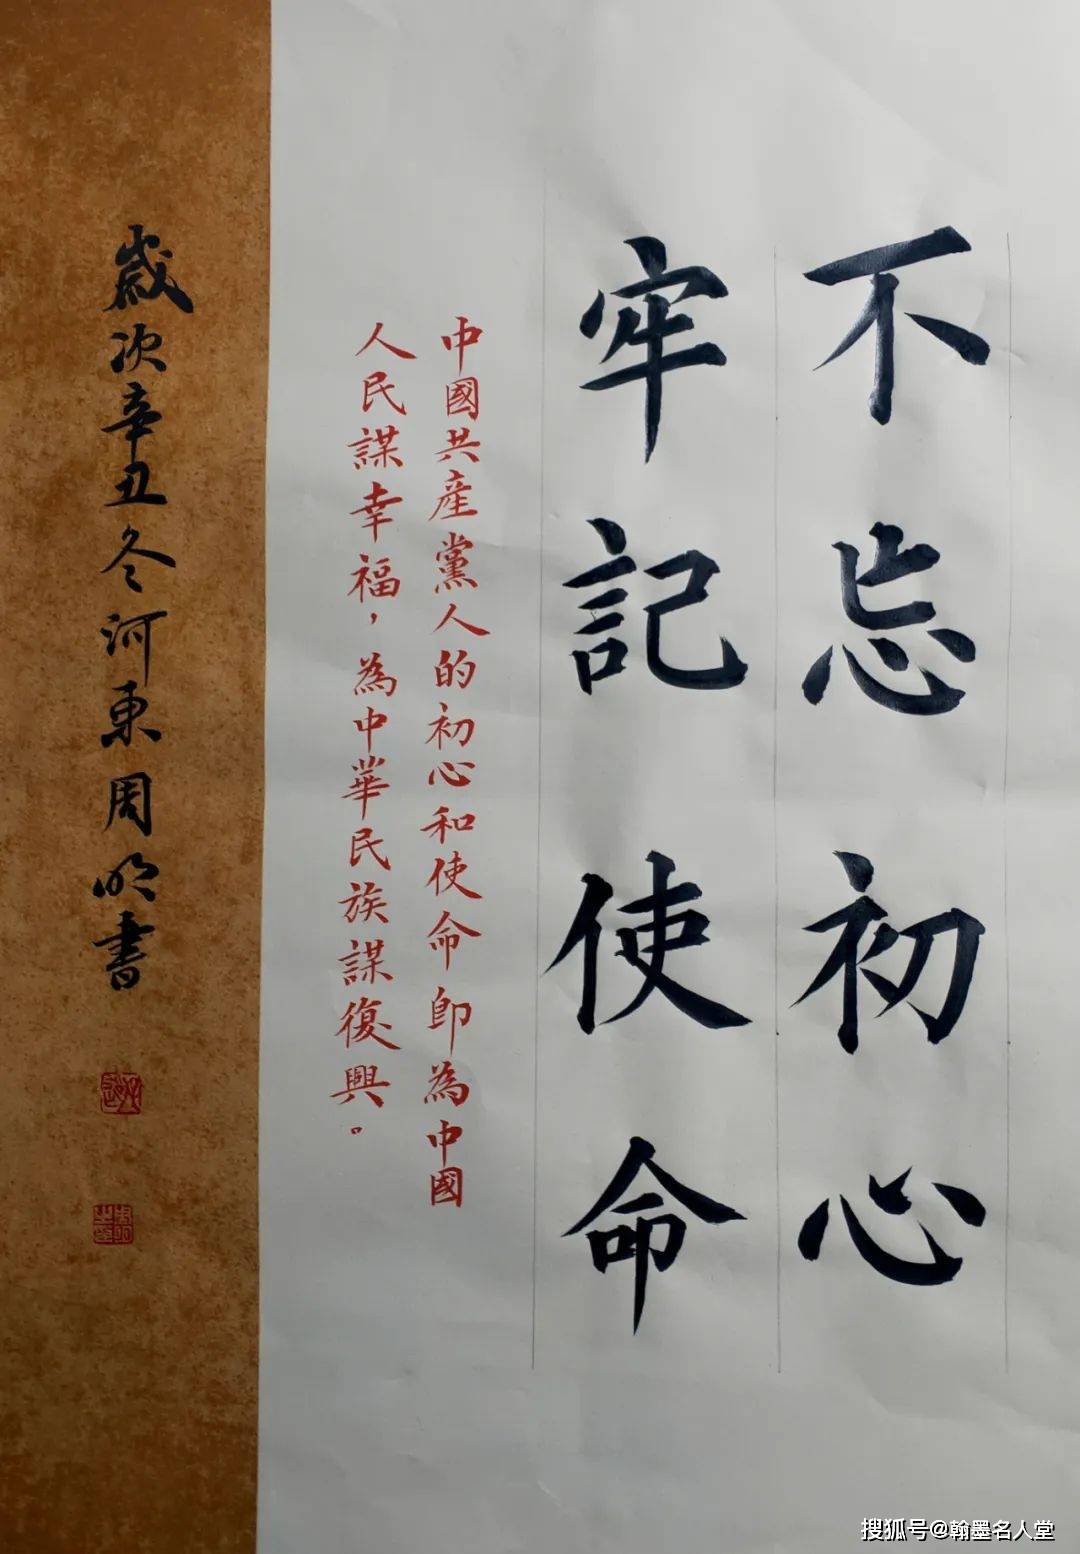 不忘初心
牢記使命
中國共產黨人的初心和使命即為中國
人民謀幸福，為中華民族謀復興。
歲次辛丑冬河東周明書
搜狐号@翰墨名人堂